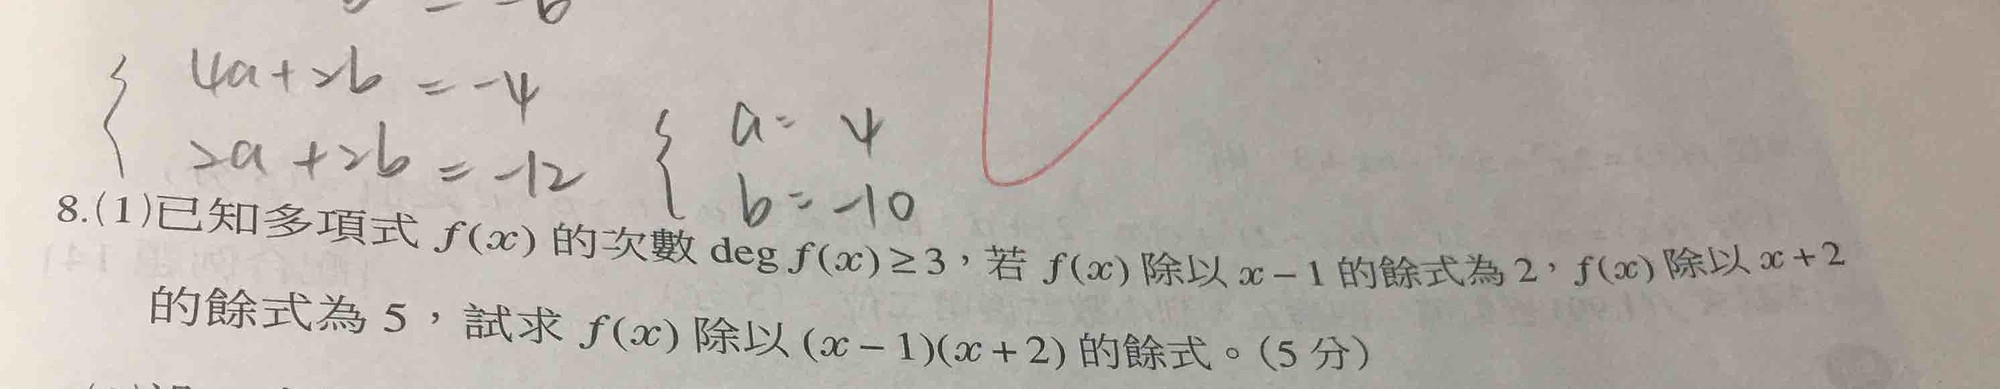 = -6
4a+2b = -4
2a+2b = -12
a= 4
b= -10
8.(1)已知多項式 f(x) 的次數 deg f(x) ≥ 3，若 f(x) 除以 x-1 的餘式為 2，f(x) 除以 x+2
的餘式為 5，試求 f(x) 除以 (x-1)(x+2) 的餘式。(5 分)